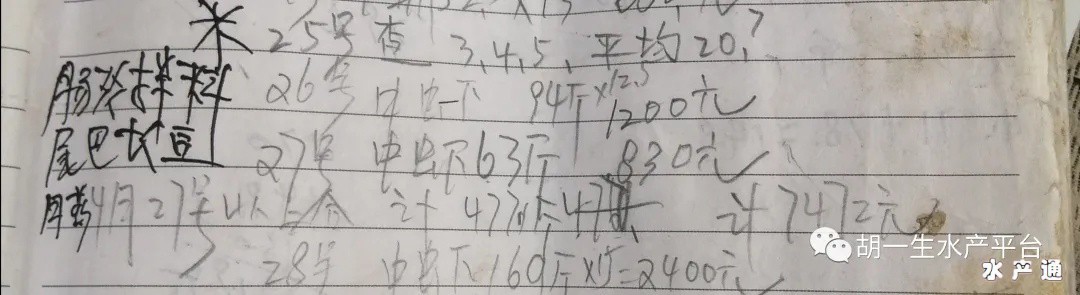 25号 查 3、4、5、平均20,?
肠炎拌料 26号 中虫下 94斤×12.5 1200元
尾巴 27号 中虫下63斤 830元
4月27号以上合计 计7472元
28号 中虫下160斤×15=2400元
胡一生水产平台
水产通